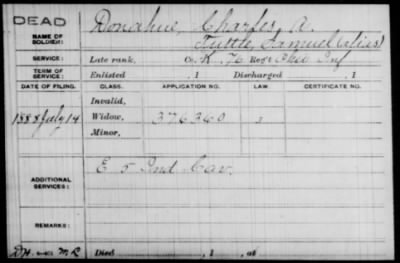 DEAD
NAME OF SOLDIER: Donahue, Charles A.
Tuttle, Samuel (alias)
SERVICE: Late rank, Co. K. 76 Reg't Ohio Inf
TERM OF SERVICE: Enlisted , 1 Discharged , 1
DATE OF FILING. CLASS. APPLICATION NO. LAW. CERTIFICATE NO.
Invalid,
1888 July 14 Widow, 376360
Minor,
ADDITIONAL SERVICES: E 5 Ind Cav.
REMARKS:
Died , 1 , at